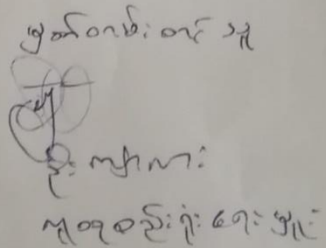 မှတ်တမ်းတင်သူ
ဦးကျာလား
ကူတစည်းရုံးရေးမှူး